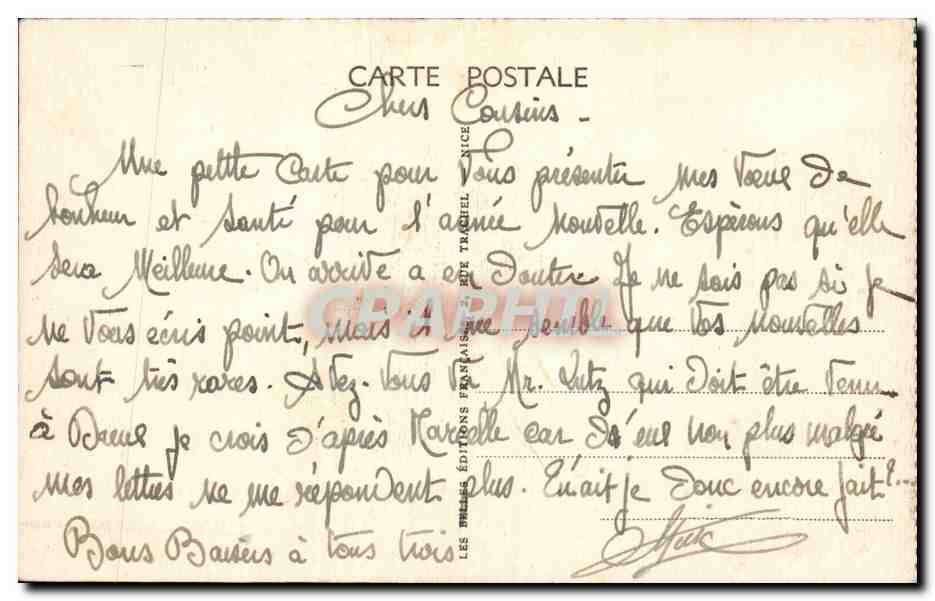 CARTE POSTALE
Chers Cousins -
Une petite Carte pour Vous présenter mes Vœux De
bonheur et Santé pour l'année Nouvelle. Espérons qu'elle
sera Meilleure. On arrive a en Douter. Je ne sais pas si je
ne Vous écris point, mais il me semble que Vos Nouvelles
sont très rares. Avez-Vous Vu Mr. Lutz qui Doit être Venu
à Dreux je crois D'après Marcelle car D'eux non plus malgré
mes lettres ne me répondent plus. Qu'ait je Donc encore fait?...
Bons Baisers à tous trois
LES BELLES ÉDITIONS FRANÇAISES, 2, RUE TRACHEL NICE
CPAPHIL